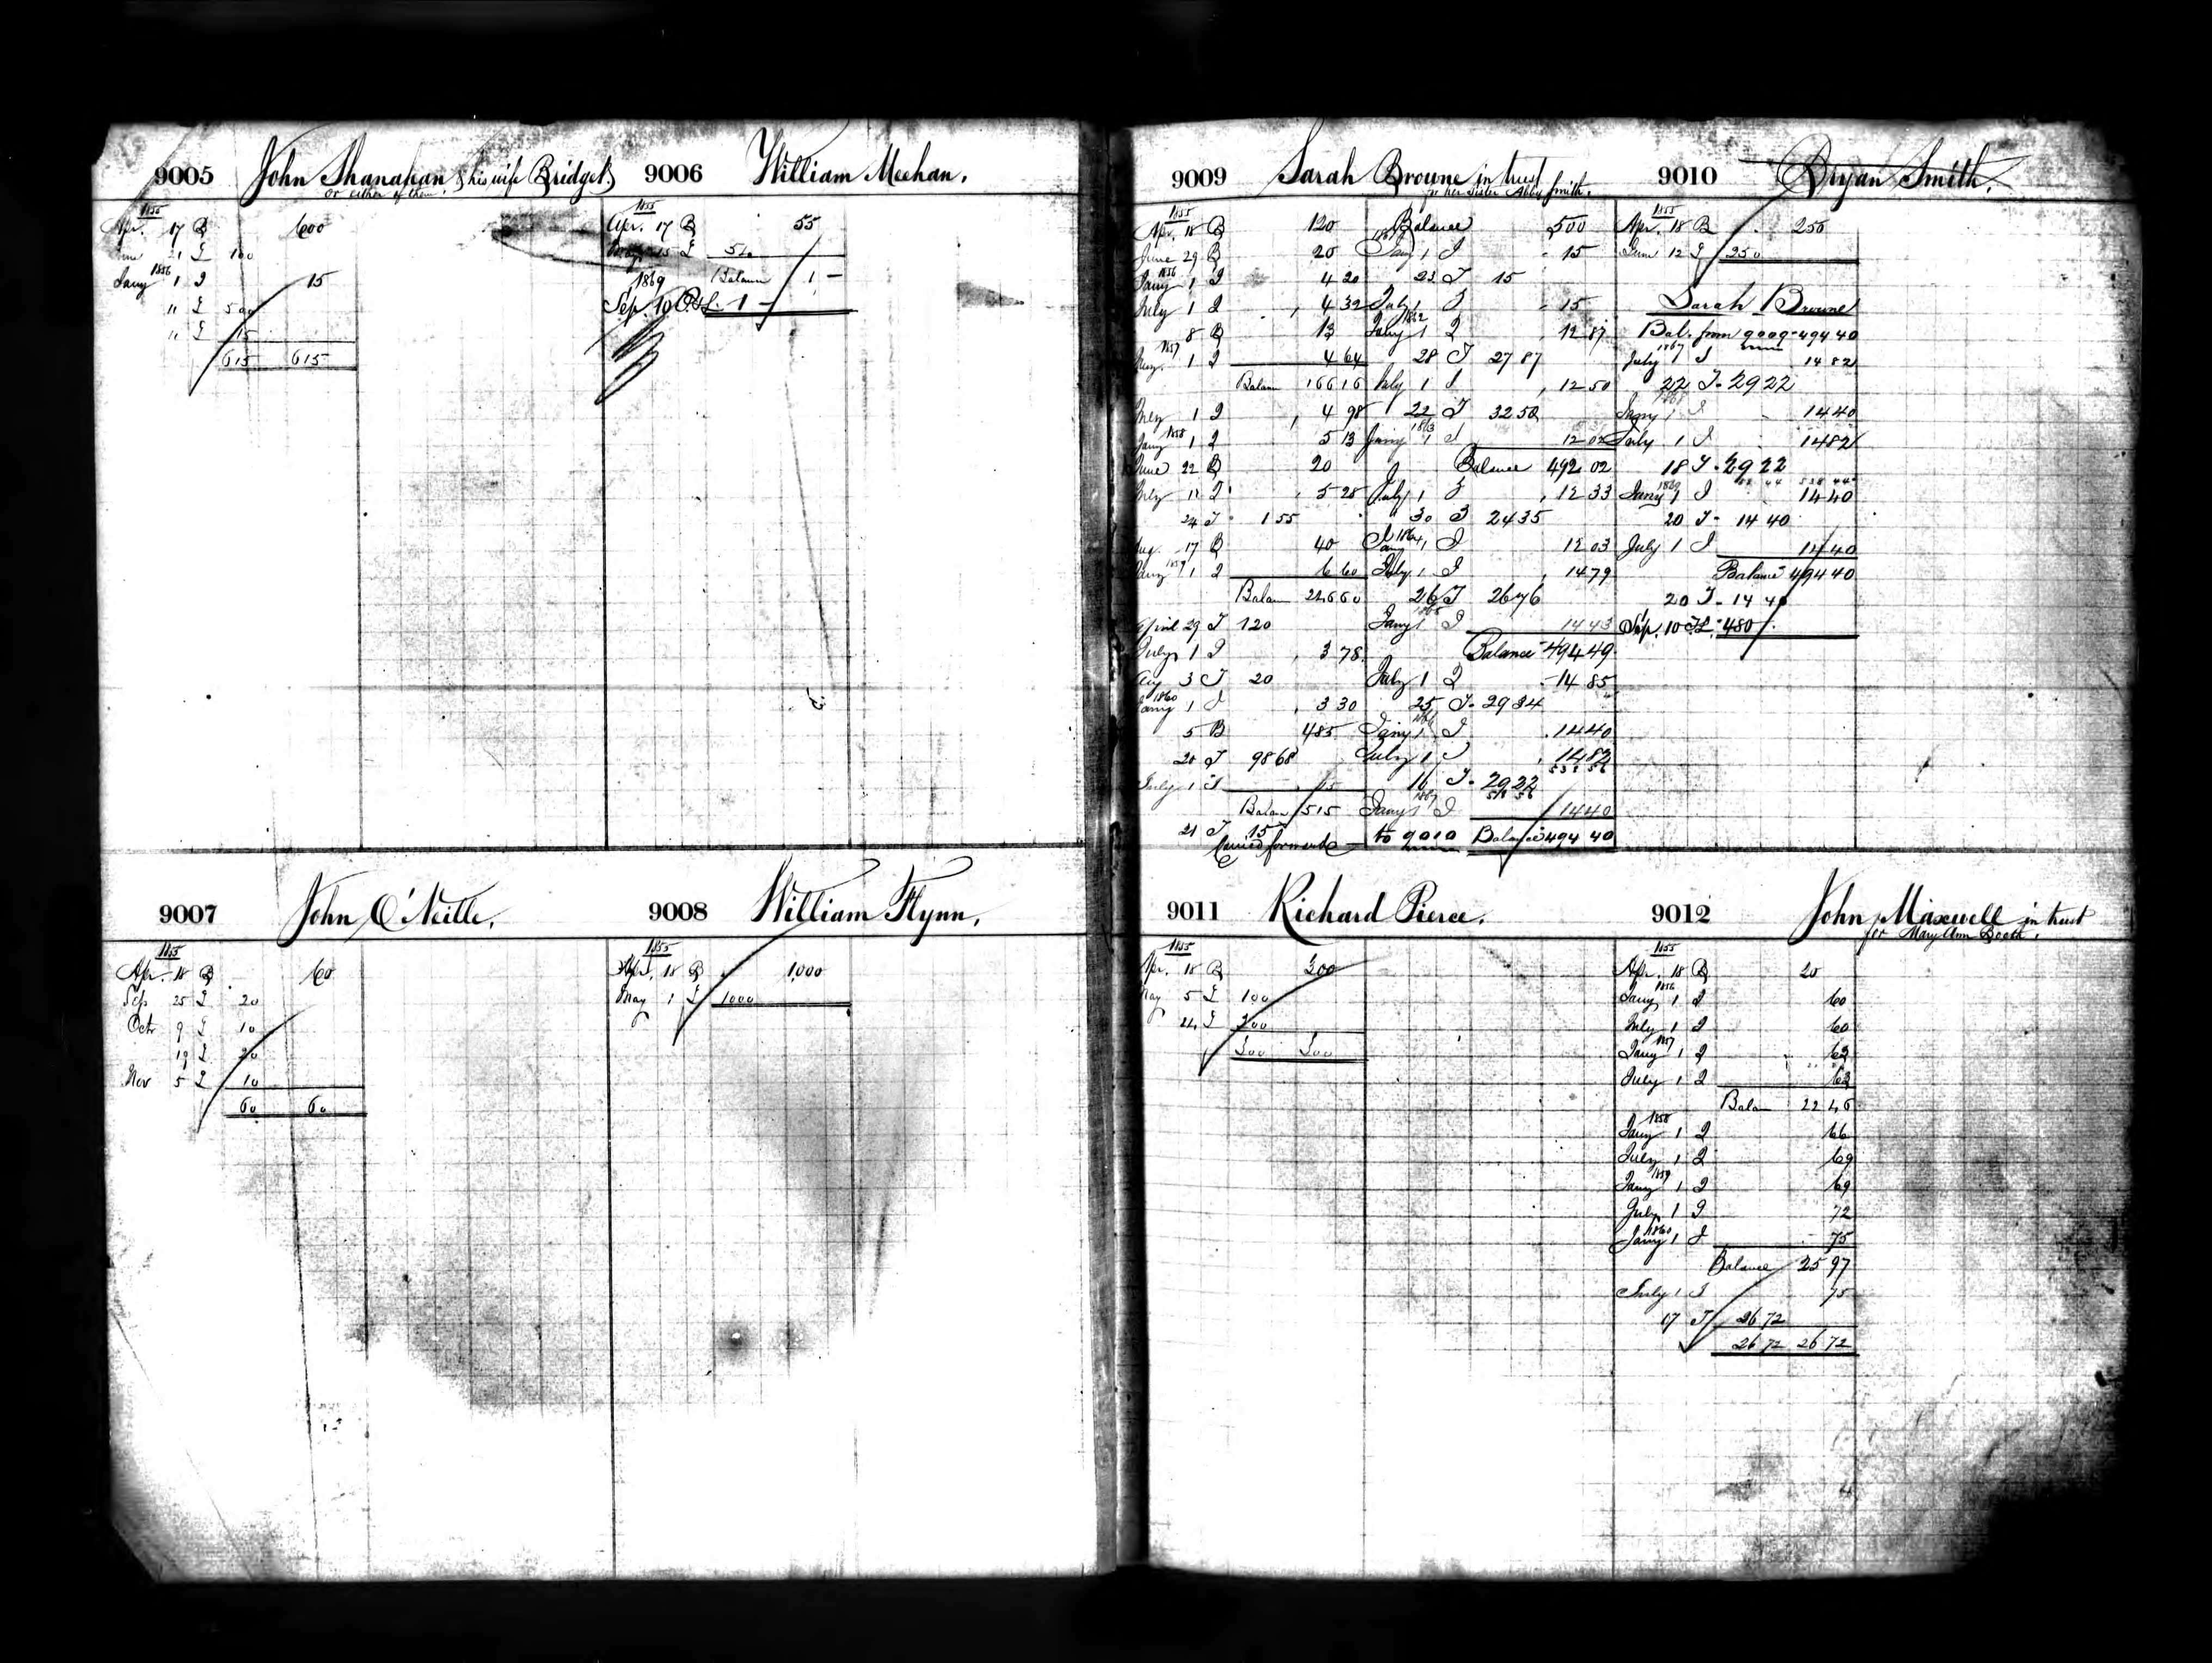 9005 John Shanahan & his wife Bridget.
or either of them.
1855
Apr. 17 B 600
June 21 T 100
Jany 1856 1 I 15
11 T 500
11 T 15
615 615
9006 William Meehan.
1855
Apr. 17 B 55
15 T 54
1869 Balance 1 -
Sep. 10 1 -
9007 John O'Neille.
1855
Apr. 18 B 60
Sep 25 T 20
Oct 9 T 10
19 T 20
Nov 5 T 10
60 60
9008 William Flynn.
1855
Apr. 18 B 1000
May 1 T 1000
9009 Sarah Browne in trust
for her sister Abby Smith.
1855
Apr. 18 B 120
June 29 B 20
Jany 1856 1 I 4 20
July 1 I 4 32
8 B 13
Jany 1857 1 I 4 64
Balan 166 16
July 1 I 4 98
Jany 1858 1 I 5 13
June 22 B 20
July 1 I 5 28
24 T 1 55
Aug 17 B 40
Jany 1859 1 I 6 60
Balan 226 60
April 29 T 120
July 1 I 3 78
Aug 3 T 20
Jany 1860 1 I 3 30
5 B 485
20 T 98 68
July 1 I 15
Balan 515
21 T 15
Carried forward
Balance 500
1861 Jany 1 I 15
23 T 15
July 1 I 15
Jany 1862 1 I 12 87
28 T 27 87
July 1 I 12 50
22 T 32 50
Jany 1863 1 I 12 02
Balance 492 02
July 1 I 12 33
30 T 24 35
Jany 1864 1 I 12 03
July 1 I 14 79
26 T 26 76
Jany 1865 1 I 14 43
Balance 494 49
July 1 I 14 85
25 T 29 34
Jany 1866 1 I 14 40
July 1 I 14 82
16 T 29 22
Jany 1867 1 I 14 40
to 9010 Balance 494 40
9010 Bryan Smith.
1855
Apr. 18 B 250
June 12 T 250
Sarah Browne
Bal. from 9009 494 40
1867
July 1 I 14 82
22 T 29 22
Jany 1868 1 I 14 40
July 1 I 14 82
18 T 29 22
Jany 1869 1 I 14 40
20 T 14 40
July 1 I 14 40
Balance 494 40
20 T 14 40
Sep. 10 480
9011 Richard Pierce.
1855
Apr. 18 B 300
May 5 T 100
24 T 200
300 300
9012 John Maxwell in trust
for Mary Ann Booth.
1855
Apr. 18 B 20
Jany 1856 1 I 60
July 1 I 60
Jany 1857 1 I 63
July 1 I 63
Balan 22 46
Jany 1858 1 I 66
July 1 I 69
Jany 1859 1 I 69
July 1 I 72
Jany 1860 1 I 75
Balance 25 97
July 1 I 75
17 T 26 72
26 72 26 72